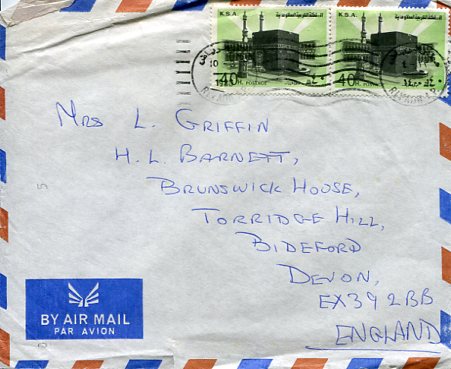 K.S.A. المملكة العربية السعودية
K.S.A. المملكة العربية السعودية
40
40
Mrs L. GRIFFIN
H. L. BARNETT,
BRUNSWICK HOUSE,
TORRIDGE HILL,
BIDEFORD
DEVON,
EX39 2BB
ENGLAND
BY AIR MAIL
PAR AVION